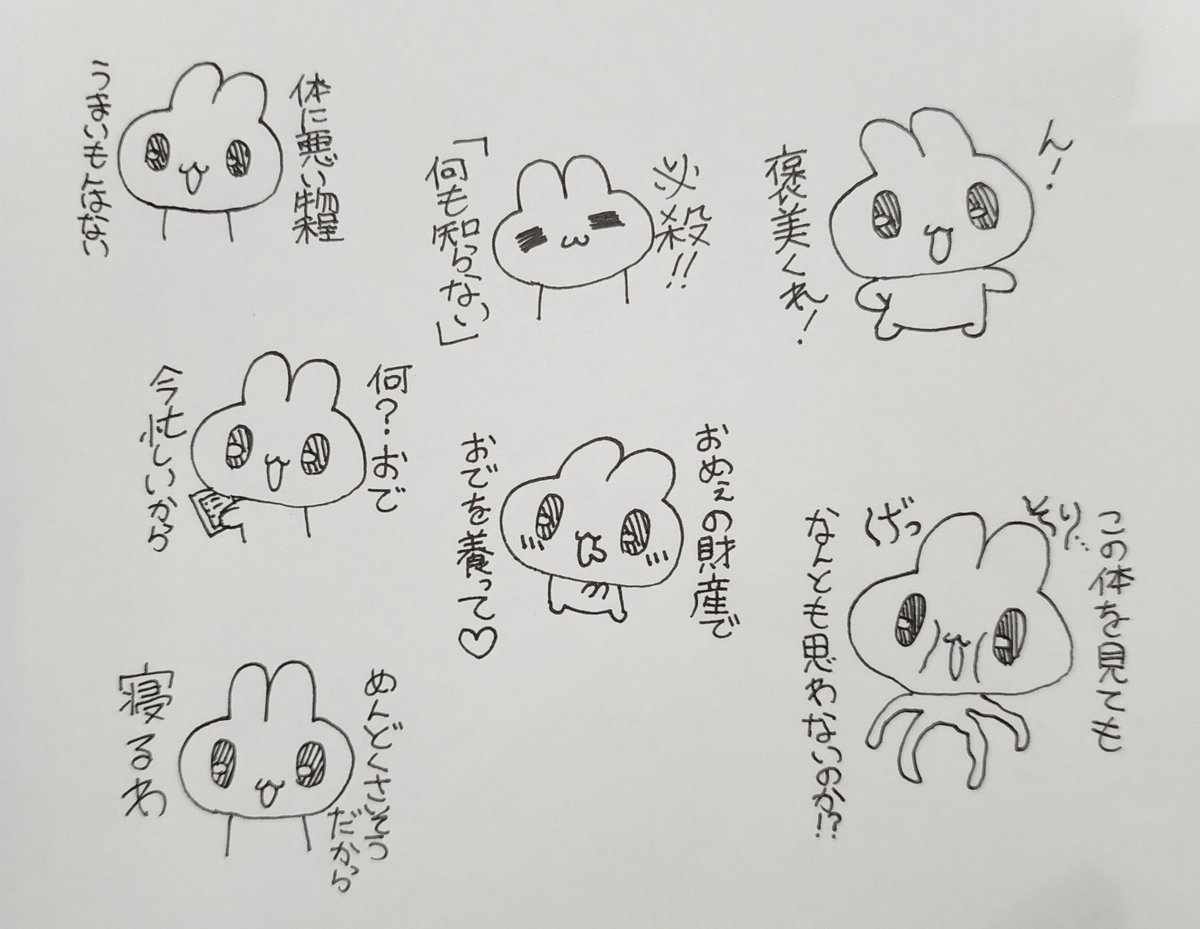 ん！
褒美くれ！
必殺!!
「何も知らない」
体に悪い物程
うまいもんはない
何？おで
今忙しいから
おめぇの財産で
おでを養って♡
この体を見ても
なんとも思わないのか!?
げっそり…
めんどくさそう
だから
寝るわ